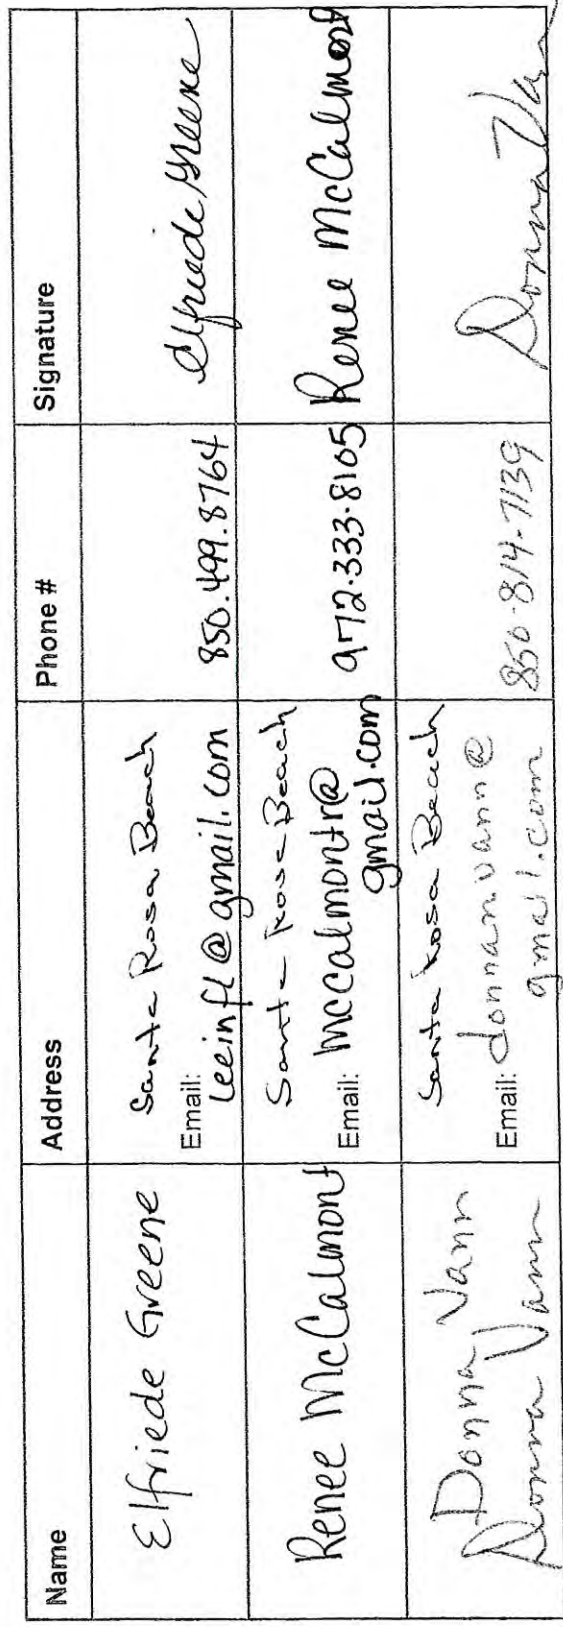 Name Address Phone # Signature
Elfriede Greene
Santa Rosa Beach
Email: leeinfl@gmail.com
850.499.8764
Elfriede Greene
Renee McCalmont
Santa Rosa Beach
Email: mccalmontr@
gmail.com
972.333.8105
Renee McCalmont
Donna Vann
Donna Vann
Santa Rosa Beach
Email: donnanvann@
gmail.com
850-814-7139
Donna Vann